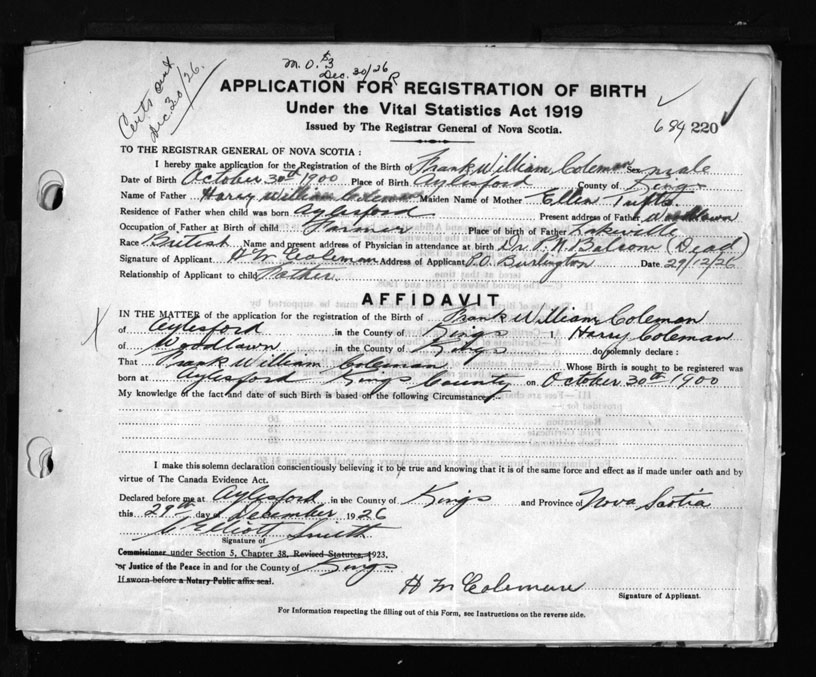 M.O. $3
Dec. 30/26
Certs out
Dec 30/26.
APPLICATION FOR REGISTRATION OF BIRTH
Under the Vital Statistics Act 1919
Issued by The Registrar General of Nova Scotia.
684 220
TO THE REGISTRAR GENERAL OF NOVA SCOTIA :
I hereby make application for the Registration of the Birth of Frank William Coleman Sex male
Date of Birth October 30th 1900 Place of Birth Aylesford County of Kings
Name of Father Harry William Coleman Maiden Name of Mother Ellen Tufts.
Residence of Father when child was born Aylesford Present address of Father Woodlawn
Occupation of Father at Birth of child Farmer Place of birth of Father Lakeville
Race British Name and present address of Physician in attendance at birth Dr. P.N. Balsom (Dead)
Signature of Applicant H W Coleman Address of Applicant P.O. Burlington Date 29/12/26
Relationship of Applicant to child Father.
AFFIDAVIT
IN THE MATTER of the application for the registration of the Birth of Frank William Coleman
of Aylesford in the County of Kings I Harry Coleman
of Woodlawn in the County of Kings do solemnly declare :
That Frank William Coleman Whose Birth is sought to be registered was
born at Aylesford Kings County on October 30th 1900
My knowledge of the fact and date of such Birth is based on the following Circumstance:-
I make this solemn declaration conscientiously believing it to be true and knowing that it is of the same force and effect as if made under oath and by
virtue of The Canada Evidence Act.
Declared before me at Aylesford in the County of Kings and Province of Nova Scotia
this 29th day of December 1926
Elliott Smith
Signature of
Commissioner under Section 5, Chapter 38, Revised Statutes, 1923,
or Justice of the Peace in and for the County of Kings
If sworn before a Notary Public affix seal.
H W Coleman
Signature of Applicant.
For Information respecting the filling out of this Form, see Instructions on the reverse side.